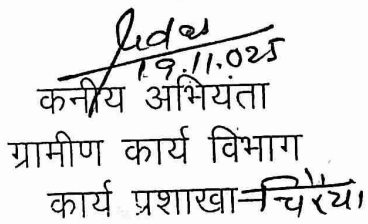 19.11.025
कनीय अभियंता
ग्रामीण कार्य विभाग
कार्य प्रशाखा-चिरैया